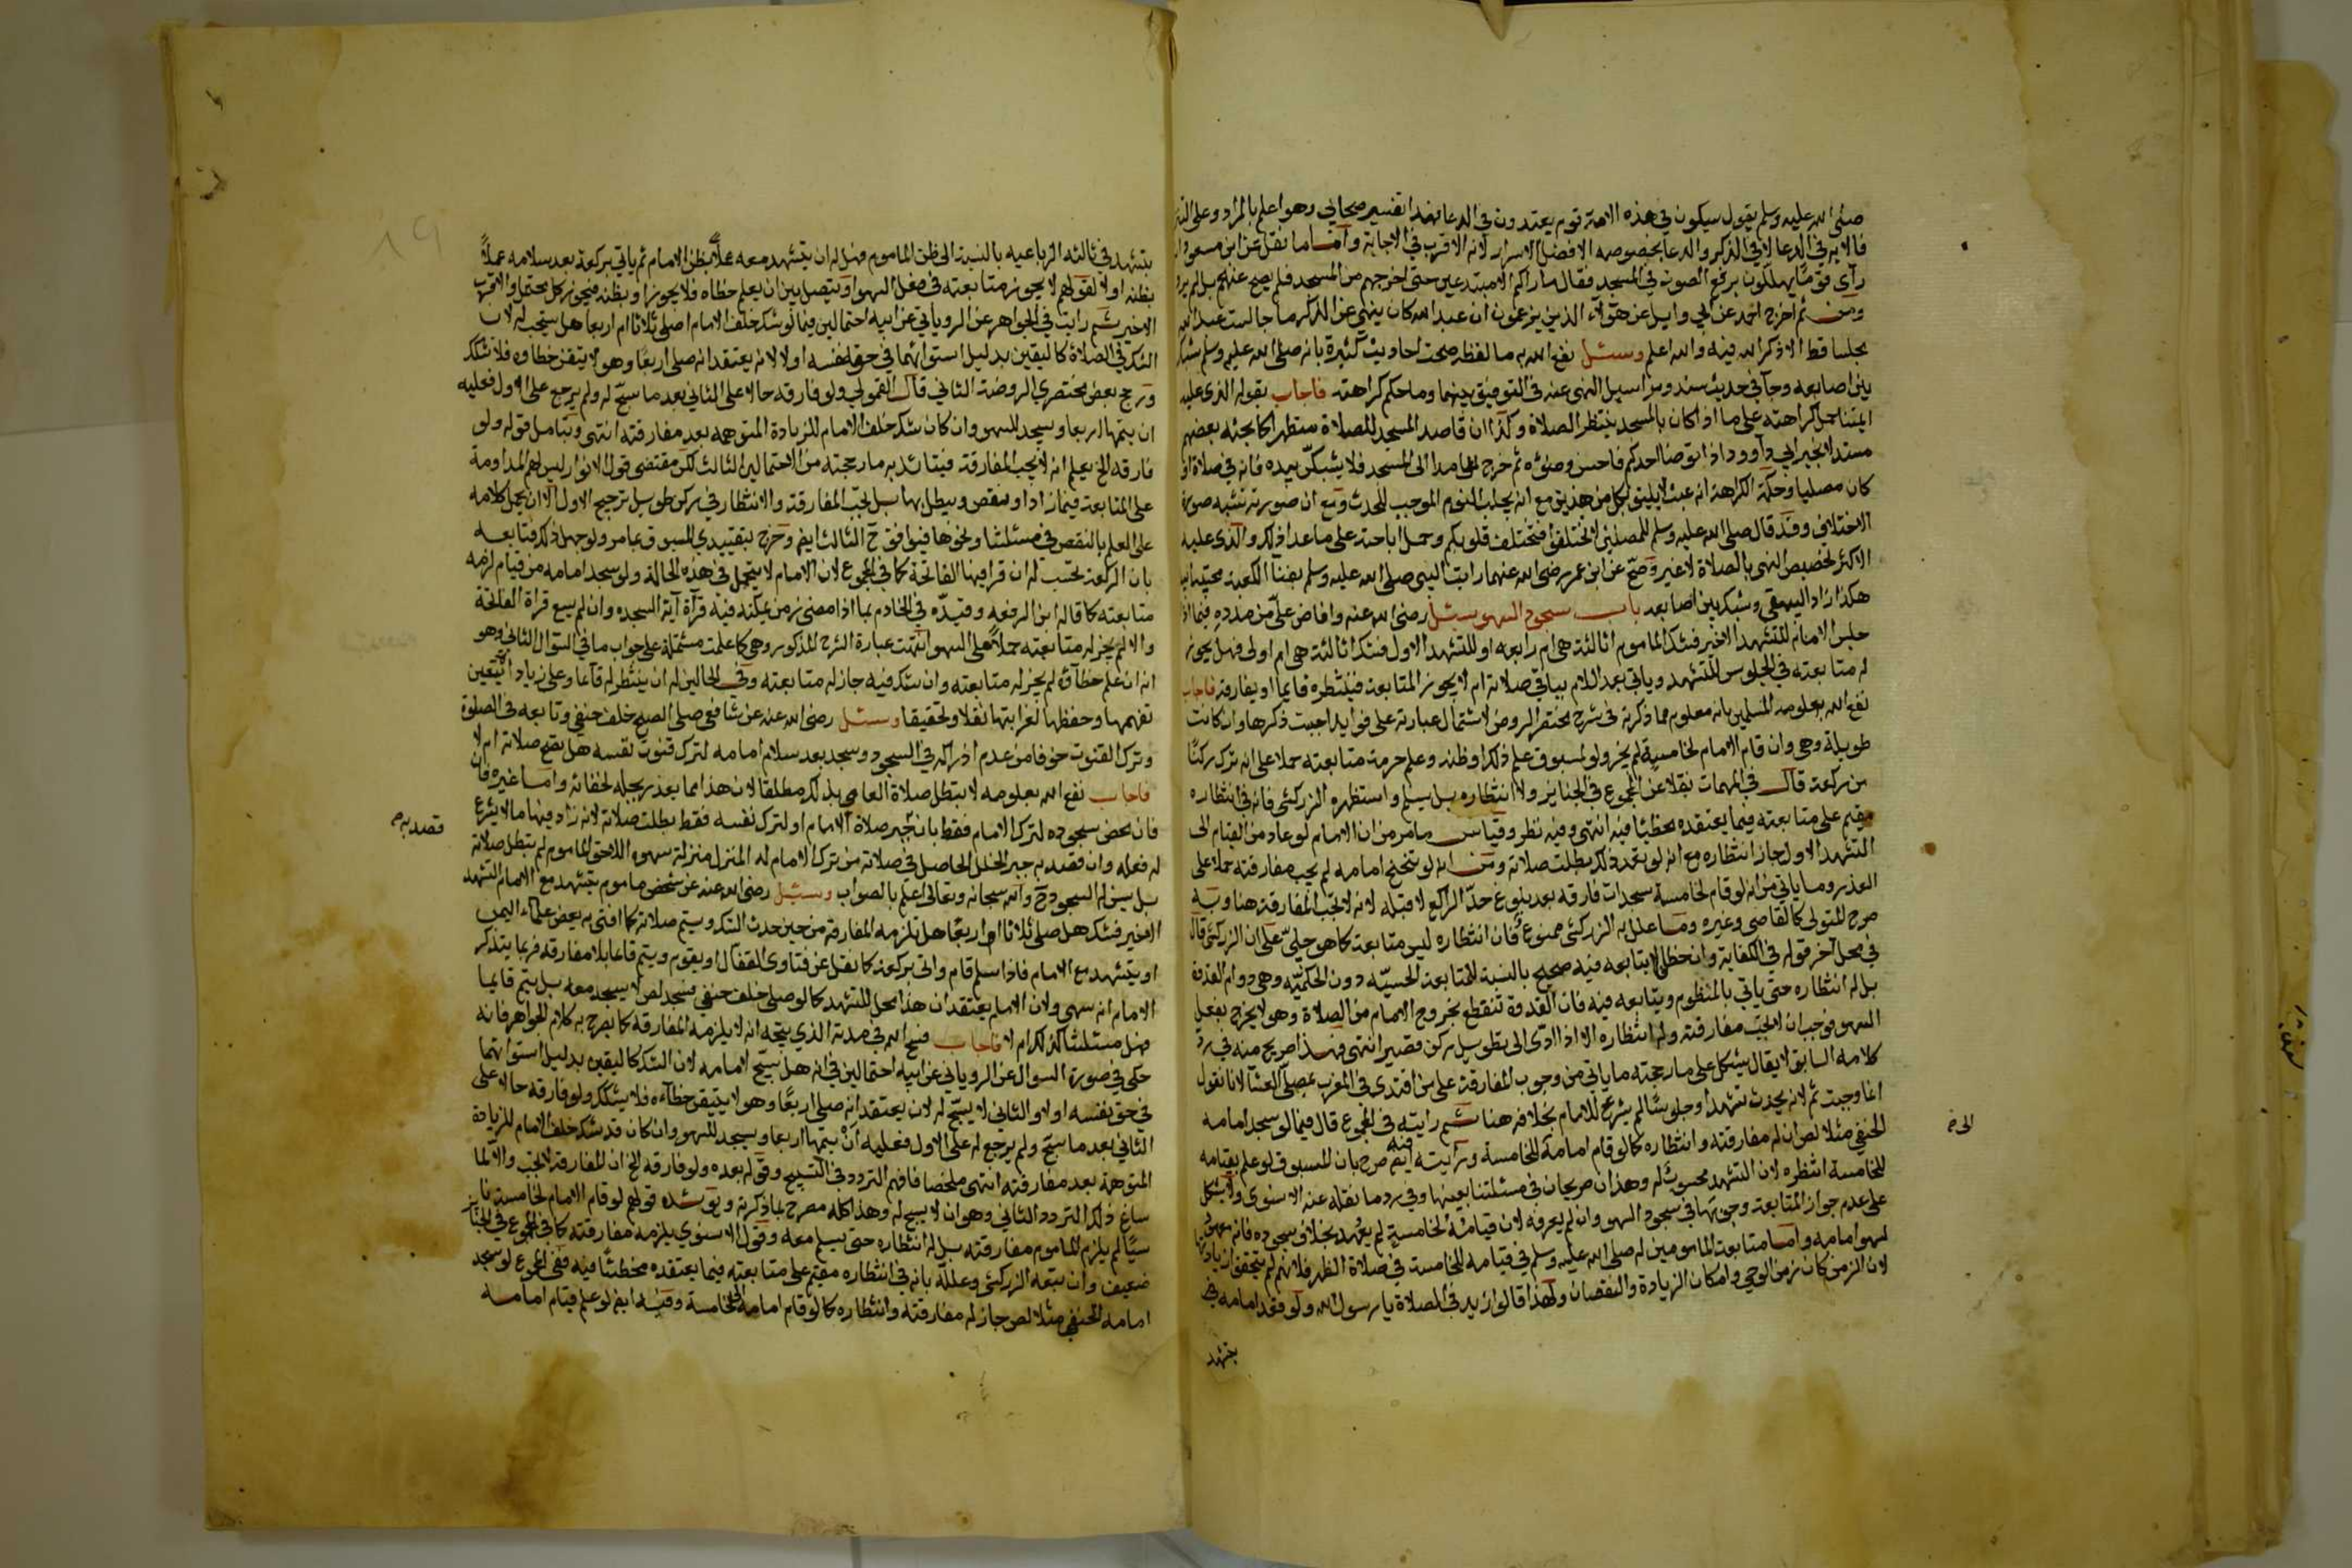 صلى الله عليه وسلم يقول سيكون في هذه الامة قوم يعتدون في الدعا فهذا تفسير صحابي وهو اعلم بالمراد وعلى
فالاية في الدعا لا في الذكر والدعا بخصوصه الافضل الاسرار لانه الاقرب في الاجابة واما ما نقل عن ابن مسعود
رآى قوما يهللون برفع الصوت في المسجد فقال ما اراكم الا مبتدعين حتى اخرجهم من المسجد فلم يصح عنه بل لم يرد
ومن ثم اخرج احمد عن ابي وايل عن هؤلاء الذين يزعمون ان عبد الله كان ينهى عن الذكر ما جالست عبد الله
مجلسا قط الا ذكر الله فيه والله اعلم وسئل نفع الله به ما لفظه صحت احاديث كثيرة بانه صلى الله عليه وسلم شبك
بين اصابعه وجآ في حديث مسند ومراسيل النهى عنه فما التوفيق بينهما وما حكم كراهته فاجاب بقوله الذى عليه
ايمتنا حمل كراهته على ما اذا كان بالمسجد ينتظر الصلاة وكذا ان قاصد المسجد للصلاة متطهرا كما بحثه بعضهم
مستدلا بخبر ابي دآوود اذا توضا احدكم فاحسن وضوءه ثم خرج عامدا الى المسجد فلا يشبكن بيده فانه في صلاة
كان مصليا وحكمة الكراهة انه عبث لا يليق بكل من هذين مع انه يجلب النوم الموجب للحدث ومع ان صورته تشبه صورة
الاختلاف وقد قال صلى الله عليه وسلم للمصلين لا تختلفوا فتختلف قلوبكم وحمل اباحته على ما عدا ذلك والذى عليه
الاكثر تخصيص النهى بالصلاة لا غير وصح عن ابن عمر رضى الله عنهما رايت النبي صلى الله عليه وسلم بفنا الكعبة محتبيا
هكذا زاد البيهقي وشبك بين اصابعه باب سجود السهو سئل رضى الله عنه وافاض على من مدده فيما اذا
جلس الامام للتشهد الاخير فشك الماموم اثالثة هى ام رابعه او للتشهد الاول فشك اثالثة هى ام اولى فهل يجوز
له متابعته في الجلوس للتشهد وياتي بعد السلام بباقي صلاته ام لا يجوز المتابعة فينتظره قايما او يفارقه فاجاب
نفع الله بعلومه المسلمين بانه معلوم مما ذكرته في شرح مختصر الروض لاشتمال عبارته على فوايد اجببت ذكرها وان كانت
طويلة وهى وان قام الامام لخامسة لم يجز ولو لمسبوق علم ذلك او ظنه وعلم حرمة متابعته حملا على انه ترك ركنا
من ركعة قال في المهمات نقلا عن المجموع في الجنايز ولا انتظاره بل يسلم واستظهره الزركشي فانه في انتظاره
مقيم على متابعته فيما يعتقده مخطيا فيه انتهى وفيه نظر وقياس ما مر من ان الامام لو عاد من القيام الى
التشهد الاول جاز انتظاره مع انه لو تعمد ذلك بطلت صلاته ومن انه لو تنحنح امامه لم يجب مفارقته حملا على
العذر وما ياتي من انه لو قام لخامسة سجدات فارقه بعد بلوغ حد الراكع لا قبله لانه لا تجب المفارقة هنا وبه
صرح المتولى كالقاضي وغيره وما علل به الزركشي ممنوع فان انتظاره ليس متابعة كما هو جلي على ان الزركشي قال
في محل آخر قوله في الكفاية وان خطاي لا يتابعه فيه صحيح بالنسبة للمتابعة الحسيه دون الحكمية وهى دوام القدوة
بل له انتظاره حتى ياتي بالمنظوم ويتابعه فيه فان القدوة تنقطع بخروج الامام من الصلاة وهو لا يخرج بفعل
السهو فوجب ان لا تجب مفارقته وله انتظاره الا اذا ادى الى تطويل ركن قصير انتهى فهذا صريح منه في رد
كلامه السابق لا يقال يشكل على ما رجحته ما ياتي من وجوب المفارقة على من اقتدى في المغرب بمصلى العشآ لانا نقول
انما وجبت ثم لانه يحدث تشهدا وجلوسا لم يشرع للامام بخلافه هنا ثم رايته في المجموع قال فيما لو سجد امامه
الحنفي مثلا لص ان له مفارقته وانتظاره كما لو قام امامه للخامسة ورآيته فيه ايضا صرح بان المسبوق لو علم بقيامه
الى خ
للخامسة انتظره لان التشهد محسوب له وهذان صريحان في مسئلتنا بعينها وفي رد ما نقله عنه الاسنوى ولا يشكل
على عدم جواز المتابعة وجوبها في سجود السهو وان لم يعرفه لان قيامه لخامسة لم يعهد بخلاف سجوده فانه معهود
لسهو امامه واما متابعة المامومين له صلى الله عليه وسلم في قيامه للخامسة في صلاة الظهر فلانهم لم يتحققوا زيادتها
لان الزمن كان زمن الوحي وامكان الزيادة والنقصان ولهذا قالوا ازيد في الصلاة يا رسول الله ولو فقد امامه في
يتشهد
يتشهد في ثالثه الرباعيه بالنسبة الى ظن الماموم فهل له ان يتشهد معه عملا بظن الامام ثم ياتي بركعة بعد سلامه عملا
بظنه اولا لقولهم لا يجوز متابعته في فعل السهو او يتصل بين ان يعلم خطاه فلا يجوز او بظنه فيجوز كل محتمل والاقرب
الاخير ثم رايت في الجواهر عن الروياني عن ابيه احتمالين فيما لو شك خلف الامام اصلى ثلاثا ام اربعا هل يستحب له لان
الشك في الصلاة كاليقين بدليل استوائهما في حق نفسه او لا لانه يعتقد انه صلى اربعا وهو لا يتيقن خطاوه فلا تشكك
ورجح بعض مختصري الروضة الثاني قال القمولي ولو فارقه حالا على الثاني بعد ما سبح له ولم يرجع على الاول فعليه
ان يتمها اربعا ويسجد للسهو وان كان شك خلف الامام للزيادة المتوهمه بعد مفارقته انتهى وبتامل قوله ولو
فارقه الخ يعلم انه لا تجب المفارقة فيتائد به ما رجحته من الاحتمالين الثالث لكن مقتضى قول الانوار ليس لهم المداومة
على المتابعة فيما زادا ونقص ويبطل بها بل تجب المفارقة والانتظار في ركن طويل ترجيح الاول الا ان يحمل كلامه
على العلم بالنقص في مسئلتنا ونحوها فيوافق ح الثالث ايضا وخرج بتقييدي المسبوق بما مر ولو جهل ذلك فتابعه
بان الركعة تحتسب له ان قرا فيها الفاتحة كما في المجموع لان الامام لا يتحمل في هذه الحالة ولو سجد امامه من قيام لزمه
متابعته كما قاله ابن الرفعه وقيده في الخادم بما اذا مضى زمن يمكنه فيه قرآة آية السجده وان لم يسع قراة الفاتحة
والا لم يجز له متابعته حملا على السهو انتهت عبارة الشرح المذكور وهى كما علمت مشتملة على جواب ما في السوال الثاني وهو
انه ان علم خطآؤه لم يجز له متابعته وان شك فيه جاز له متابعته وفي الحالين له ان ينتظر له قآعا وعلى زياد اليقين
تفهمها وحفظها لغرابتها نقلا وتحقيقا وسئل رضى الله عنه عن شافعي صلى الصبح خلف حنفي وتابعه في الصلوة
وترك القنوت خوفا من عدم ادراكه في السجود وسجد بعد سلام امامه لترك قنوت نفسه هل تصح صلاته ام لا
فاجاب نفع الله بعلومه لا تبطل صلاة العامي بذلك مطلقا لان هذا مما يعذر بجهله لخفائه واما غيره فان
فان محض سجوده لترك الامام فقط بان يجبر صلاة الامام او لترك نفسه فقط بطلت صلاته لانه زاد فيها ما لا يشرع
قصد به م
له فعله وان قصد به جبر الخلل الحاصل في صلاته من ترك الامام له المنزل منزلة سهوه اللاحق الماموم لم تبطل صلاته
بل يسن له السجود ح والله سبحانه وتعالى اعلم بالصواب وسئل رضى الله عنه عن شخص ماموم يتشهد مع الامام التشهد
الاخير فشك هل صلى ثلاثا ام اربعا هل تلزمه المفارقة من حين حدث الشك ويتم صلاته كما افتى به بعض علماء اليمن
او يتشهد مع الامام فاذا سلم قام واتى بركعة كما نقل عن فتاوى القفال او يقوم ويتم قاعا بلا مفارقه فربما يتذكر
الامام انه سهى ولان الامام يعتقد ان هذا محل التشهد كما لو صلى خلف حنفي فسجد لص لا يسجد معه بل يتم قايما
فهل مسئلتنا كذلك ام لا فاجاب فسح الله في مدته الذي يتجه انه لا يلزمه المفارقة كما يصرح به كلام الجواهر فانه
حكى في صورة السوال عن الروياني عن ابيه احتمالين في انه هل يسبح لامامه لان الشك كاليقين بدليل استوائهما
في حق نفسه او لا والثاني لا يسبح له لان يعتقد انه صلى اربعا وهو لا يتيقن خطآه فلا يشكك ولو فارقه حالا على
الثاني بعد ما سبح ولم يرجع له على الاول فعليه ان يتمها اربعا ويسجد للسهو وان كان قد شك خلف الامام للزيادة
المتوهمة بعد مفارقته انتهى ملخصا فافهم التردد في التسبيح وقوله بعده ولو فارقه الخ ان المفارقة لا تجب والا لما
ساغ ذلك التردد الثاني وهو ان لا يسبح له وهذا كله مصرح بما ذكرته ويؤيده قولهم لو قام الامام لخامسة
سيا لم يلزم الماموم مفارقته بل له انتظاره حتى يسلم معه وقول الاسنوي يلزمه مفارقته كما في المجموع في الجنائز
ضعيف وان تبعه الزركشي وعلله بانه في انتظاره مقيم على متابعته فيما يعتقده مخطئا فيه ففى المجموع لو سجد
امامه الحنفي مثلا لص جاز له مفارقته وانتظاره كما لو قام امامه للخامسة وفيه ايضا لو علم قيام امامه